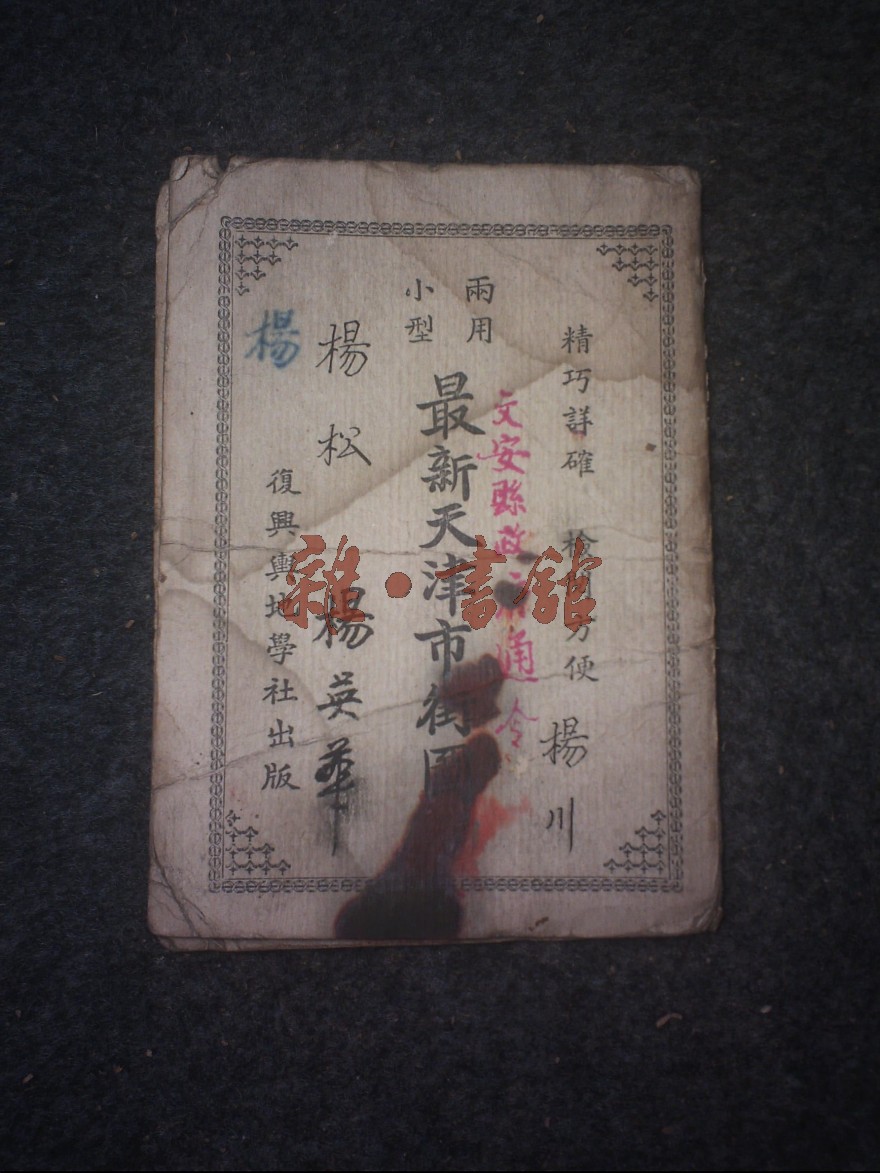 精巧詳確 檢閱方便
楊川
文安縣政府通令
兩用
小型
最新天津市街図
楊松 楊英華
復興輿地學社出版
楊
雜·書館